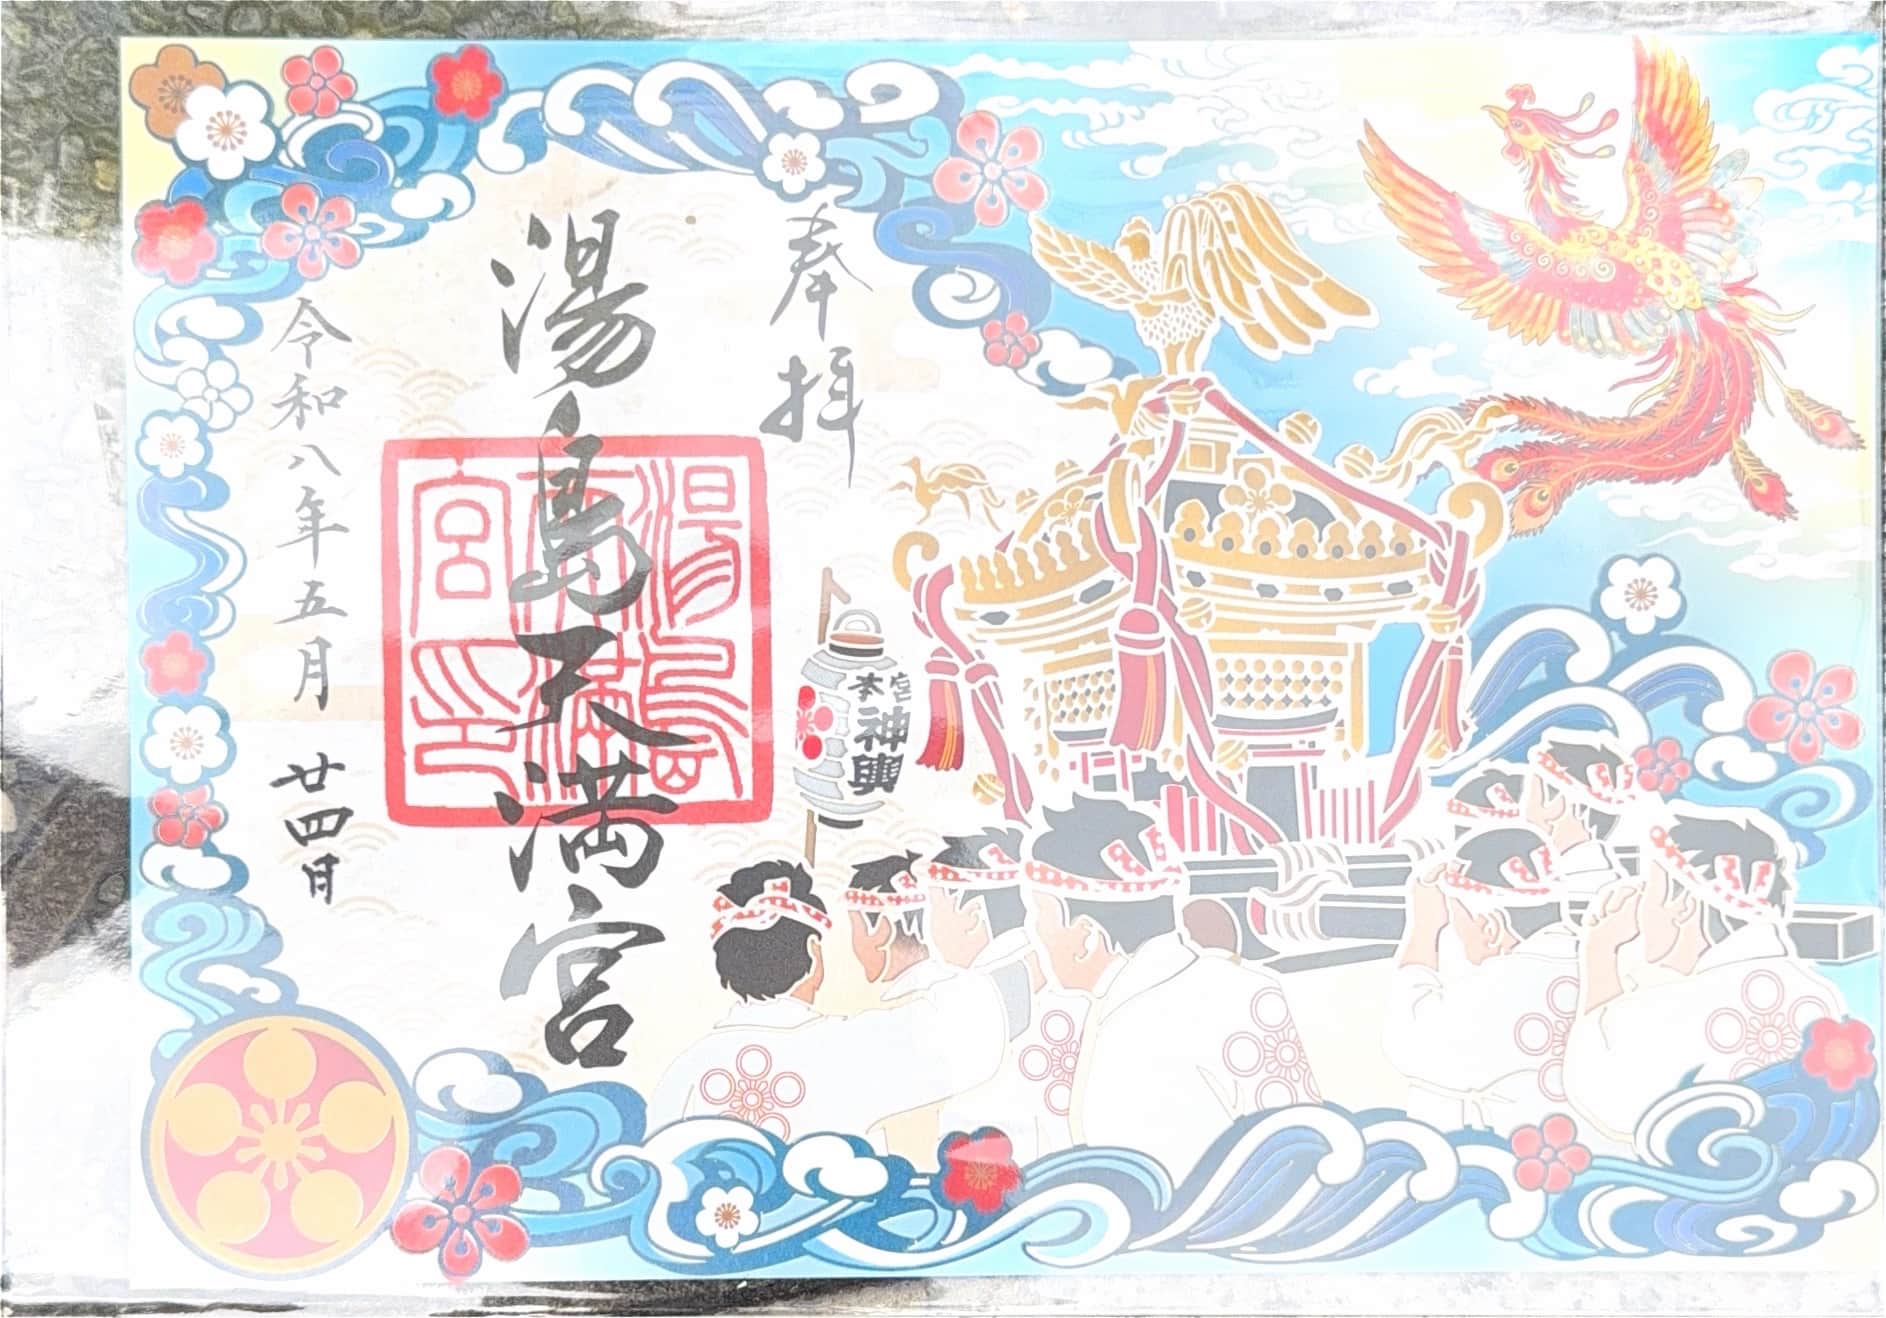 奉拝
湯島天満宮
湯島天満宮印
令和八年五月
廿四日
本宮
神輿